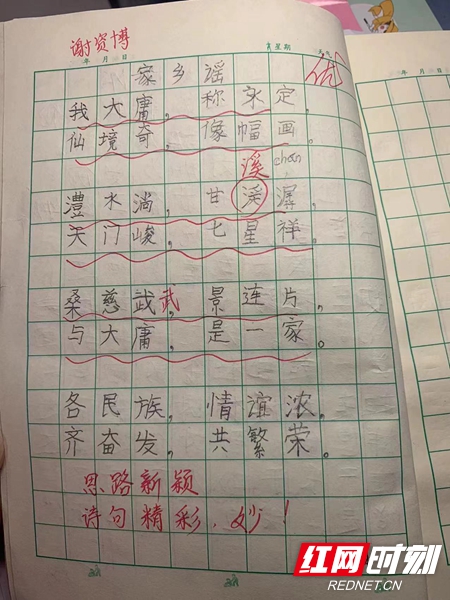 谢资博
年 月 日 星期 天气
优
家乡谣
我大庸，称永定，
仙境奇，像幅画。
溪 chán
澧水淌，甘溪潺，
天门峻，七星祥。
桑慈武武，景连片，
与大庸，是一家。
各民族，情谊浓。
齐奋发，共繁荣。
思路新颖
诗句精彩，妙！
红网时刻
REDNET.CN